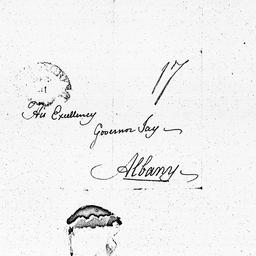 17
His Excellency
Governor Jay
Albany